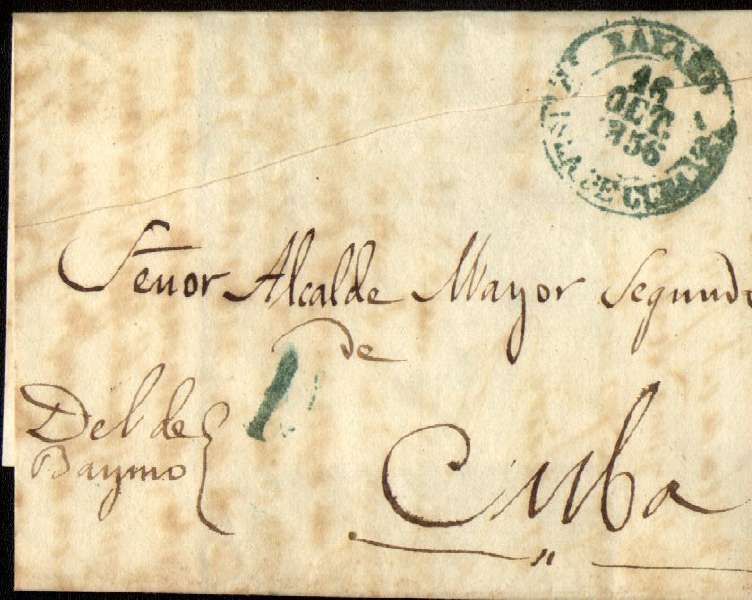 BAYAMO
16
OCT.
856
ISLA DE CUBA
Señor Alcalde Mayor Segundo
de
Del de
Baymo
Cuba